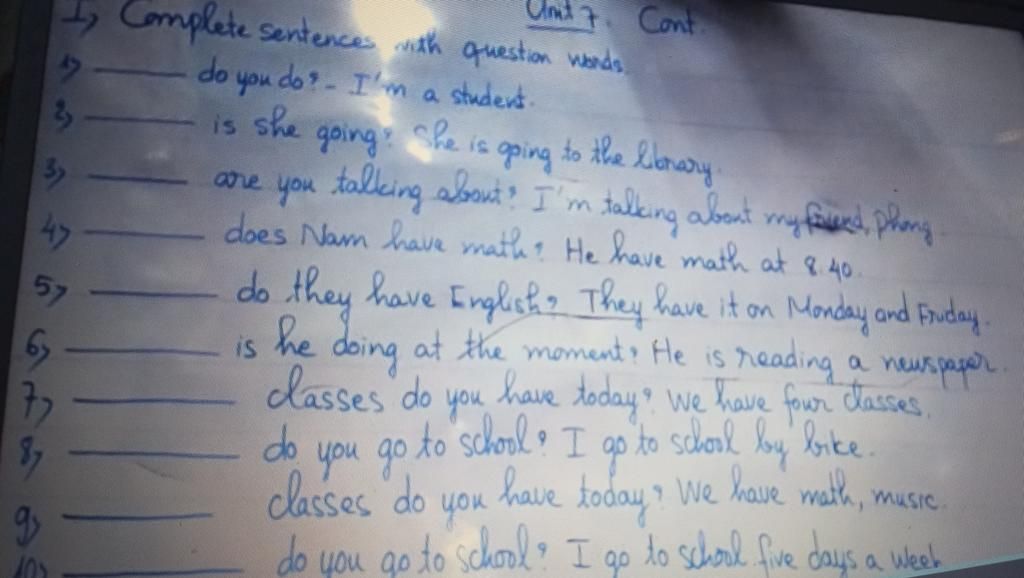 Unit 7. Cont.
I, Complete sentences with question words.
1, ______ do you do? - I'm a student.
2, ______ is she going? She is going to the library.
3, ______ are you talking about? I'm talking about my friend, Phong.
4, ______ does Nam have math? He have math at 8.40.
5, ______ do they have English? They have it on Monday and Friday.
6, ______ is he doing at the moment? He is reading a newspaper.
7, ______ classes do you have today? We have four classes.
8, ______ do you go to school? I go to school by bike.
9, ______ classes do you have today? We have math, music.
10, ______ do you go to school? I go to school five days a week